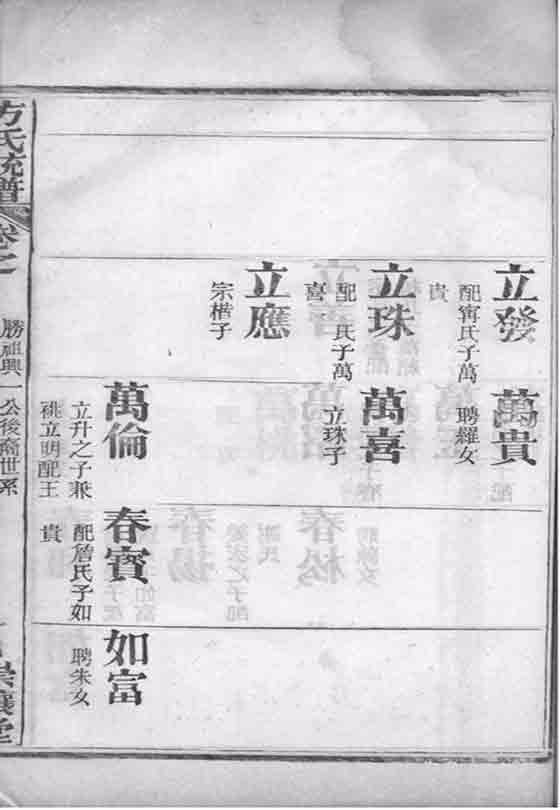 立發
配甯氏子萬
貴
立珠
配 氏子萬
喜
立應
宗楷子
萬貴
聘羅女
萬喜
立珠子
萬倫
立升之子兼
祧立明配王
春寶
配詹氏子如
貴
如富
聘朱女
方氏統譜
卷之
勝祖興一公後裔世系